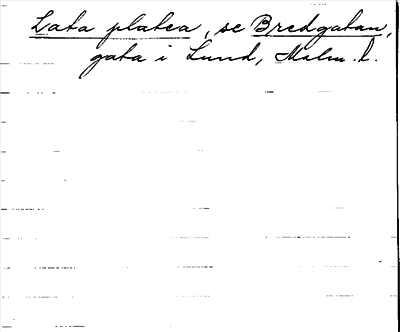 Lata platea, se Bredgatan,
gata i Lund, Malm. l.